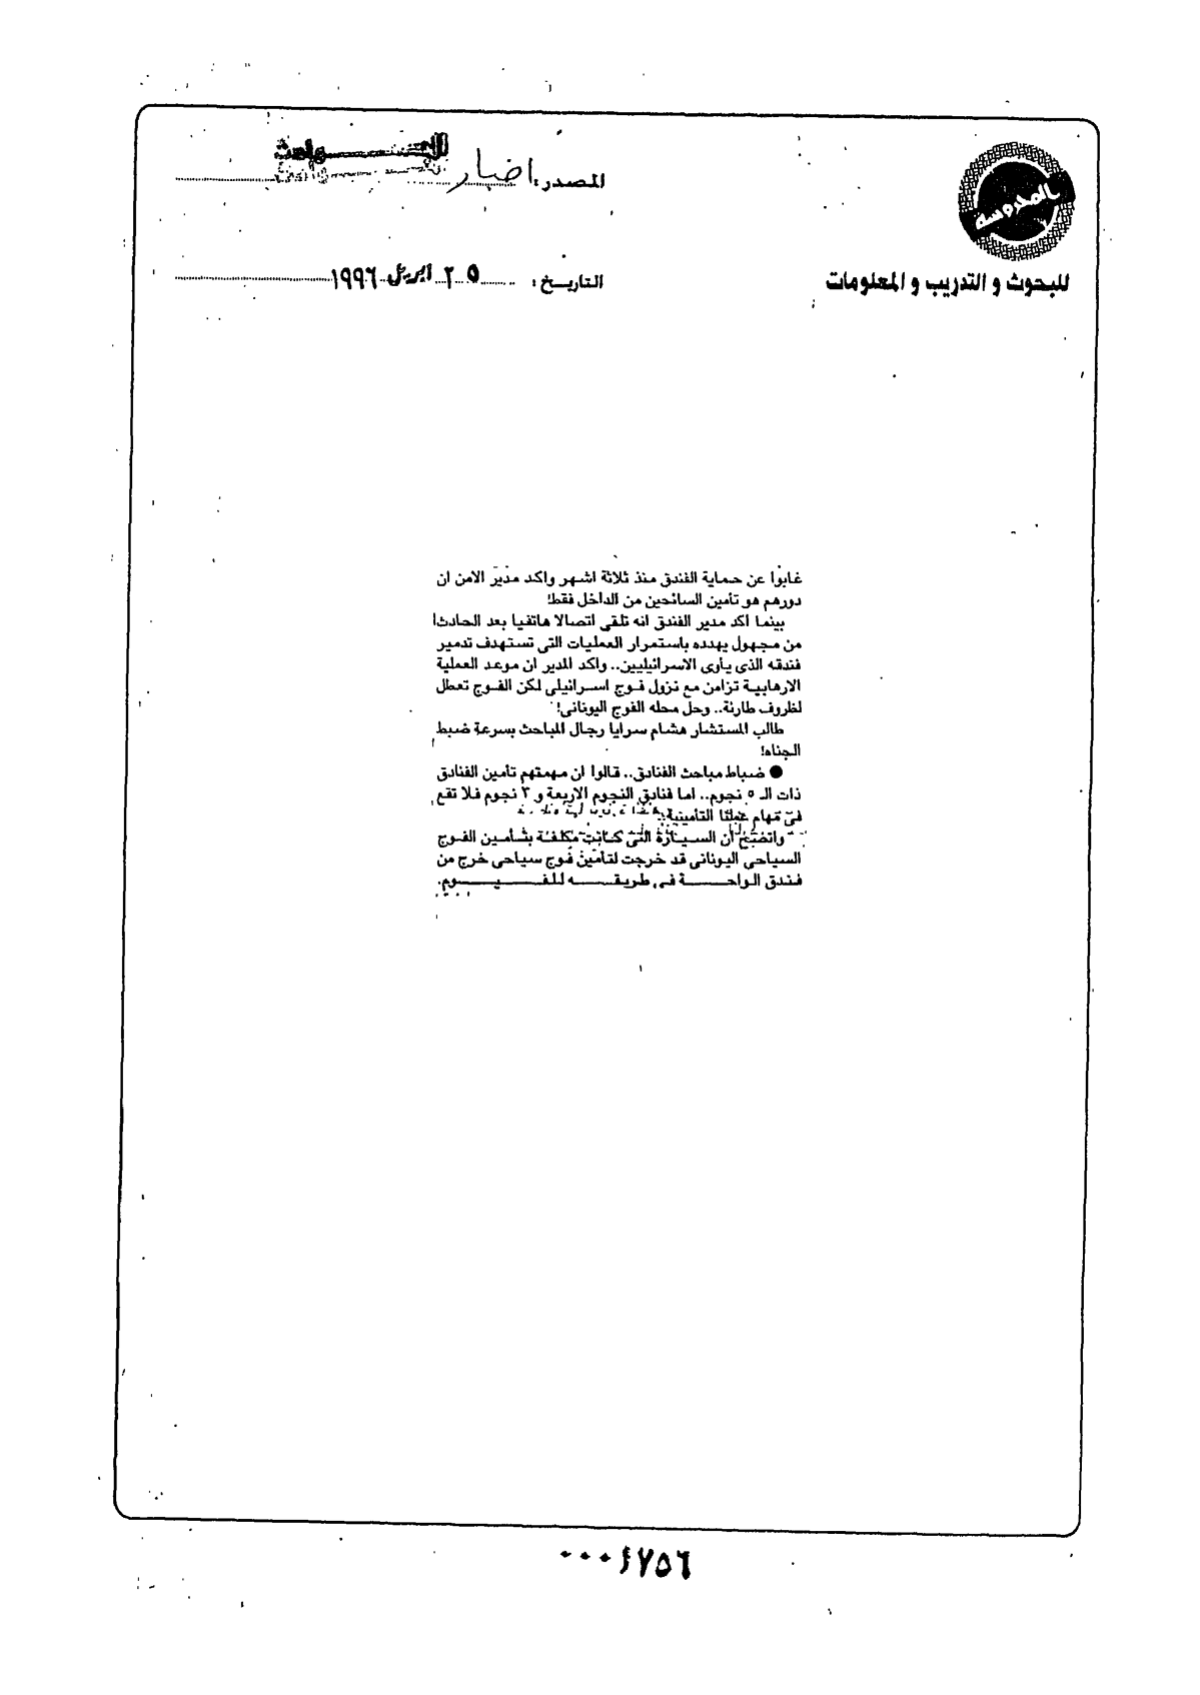 المصدر: اخبار الحوادث
بالمحروسة
للبحوث و التدريب و المعلومات
التاريخ: ٢٥ ابريل ١٩٩٦
غابوا عن حماية الفندق منذ ثلاثة اشهر واكد مدير الامن ان
دورهم هو تأمين السائحين من الداخل فقط!
بينما اكد مدير الفندق انه تلقى اتصالا هاتفيا بعد الحادث!
من مجهول يهدده باستمرار العمليات التى تستهدف تدمير
فندقه الذى يأوى الاسرائيليين.. واكد المدير ان موعد العملية
الارهابية تزامن مع نزول فوج اسرائيلى لكن الفوج تعطل
لظروف طارئة.. وحل محله الفوج اليونانى!
طالب المستشار هشام سرايا رجال المباحث بسرعة ضبط
الجناه!
● ضباط مباحث الفنادق.. قالوا ان مهمتهم تأمين الفنادق
ذات الـ ٥ نجوم.. اما فنادق النجوم الاربعة و٣ نجوم فلا تقع
فى مهام عملنا التأمينية
واتضح أن السيارة التى كانت مكلفة بتأمين الفوج
السياحى اليونانى قد خرجت لتأمين فوج سياحى خرج من
فندق الواحة فى طريقه للفيوم.
٠٠٠٤٧٥٦